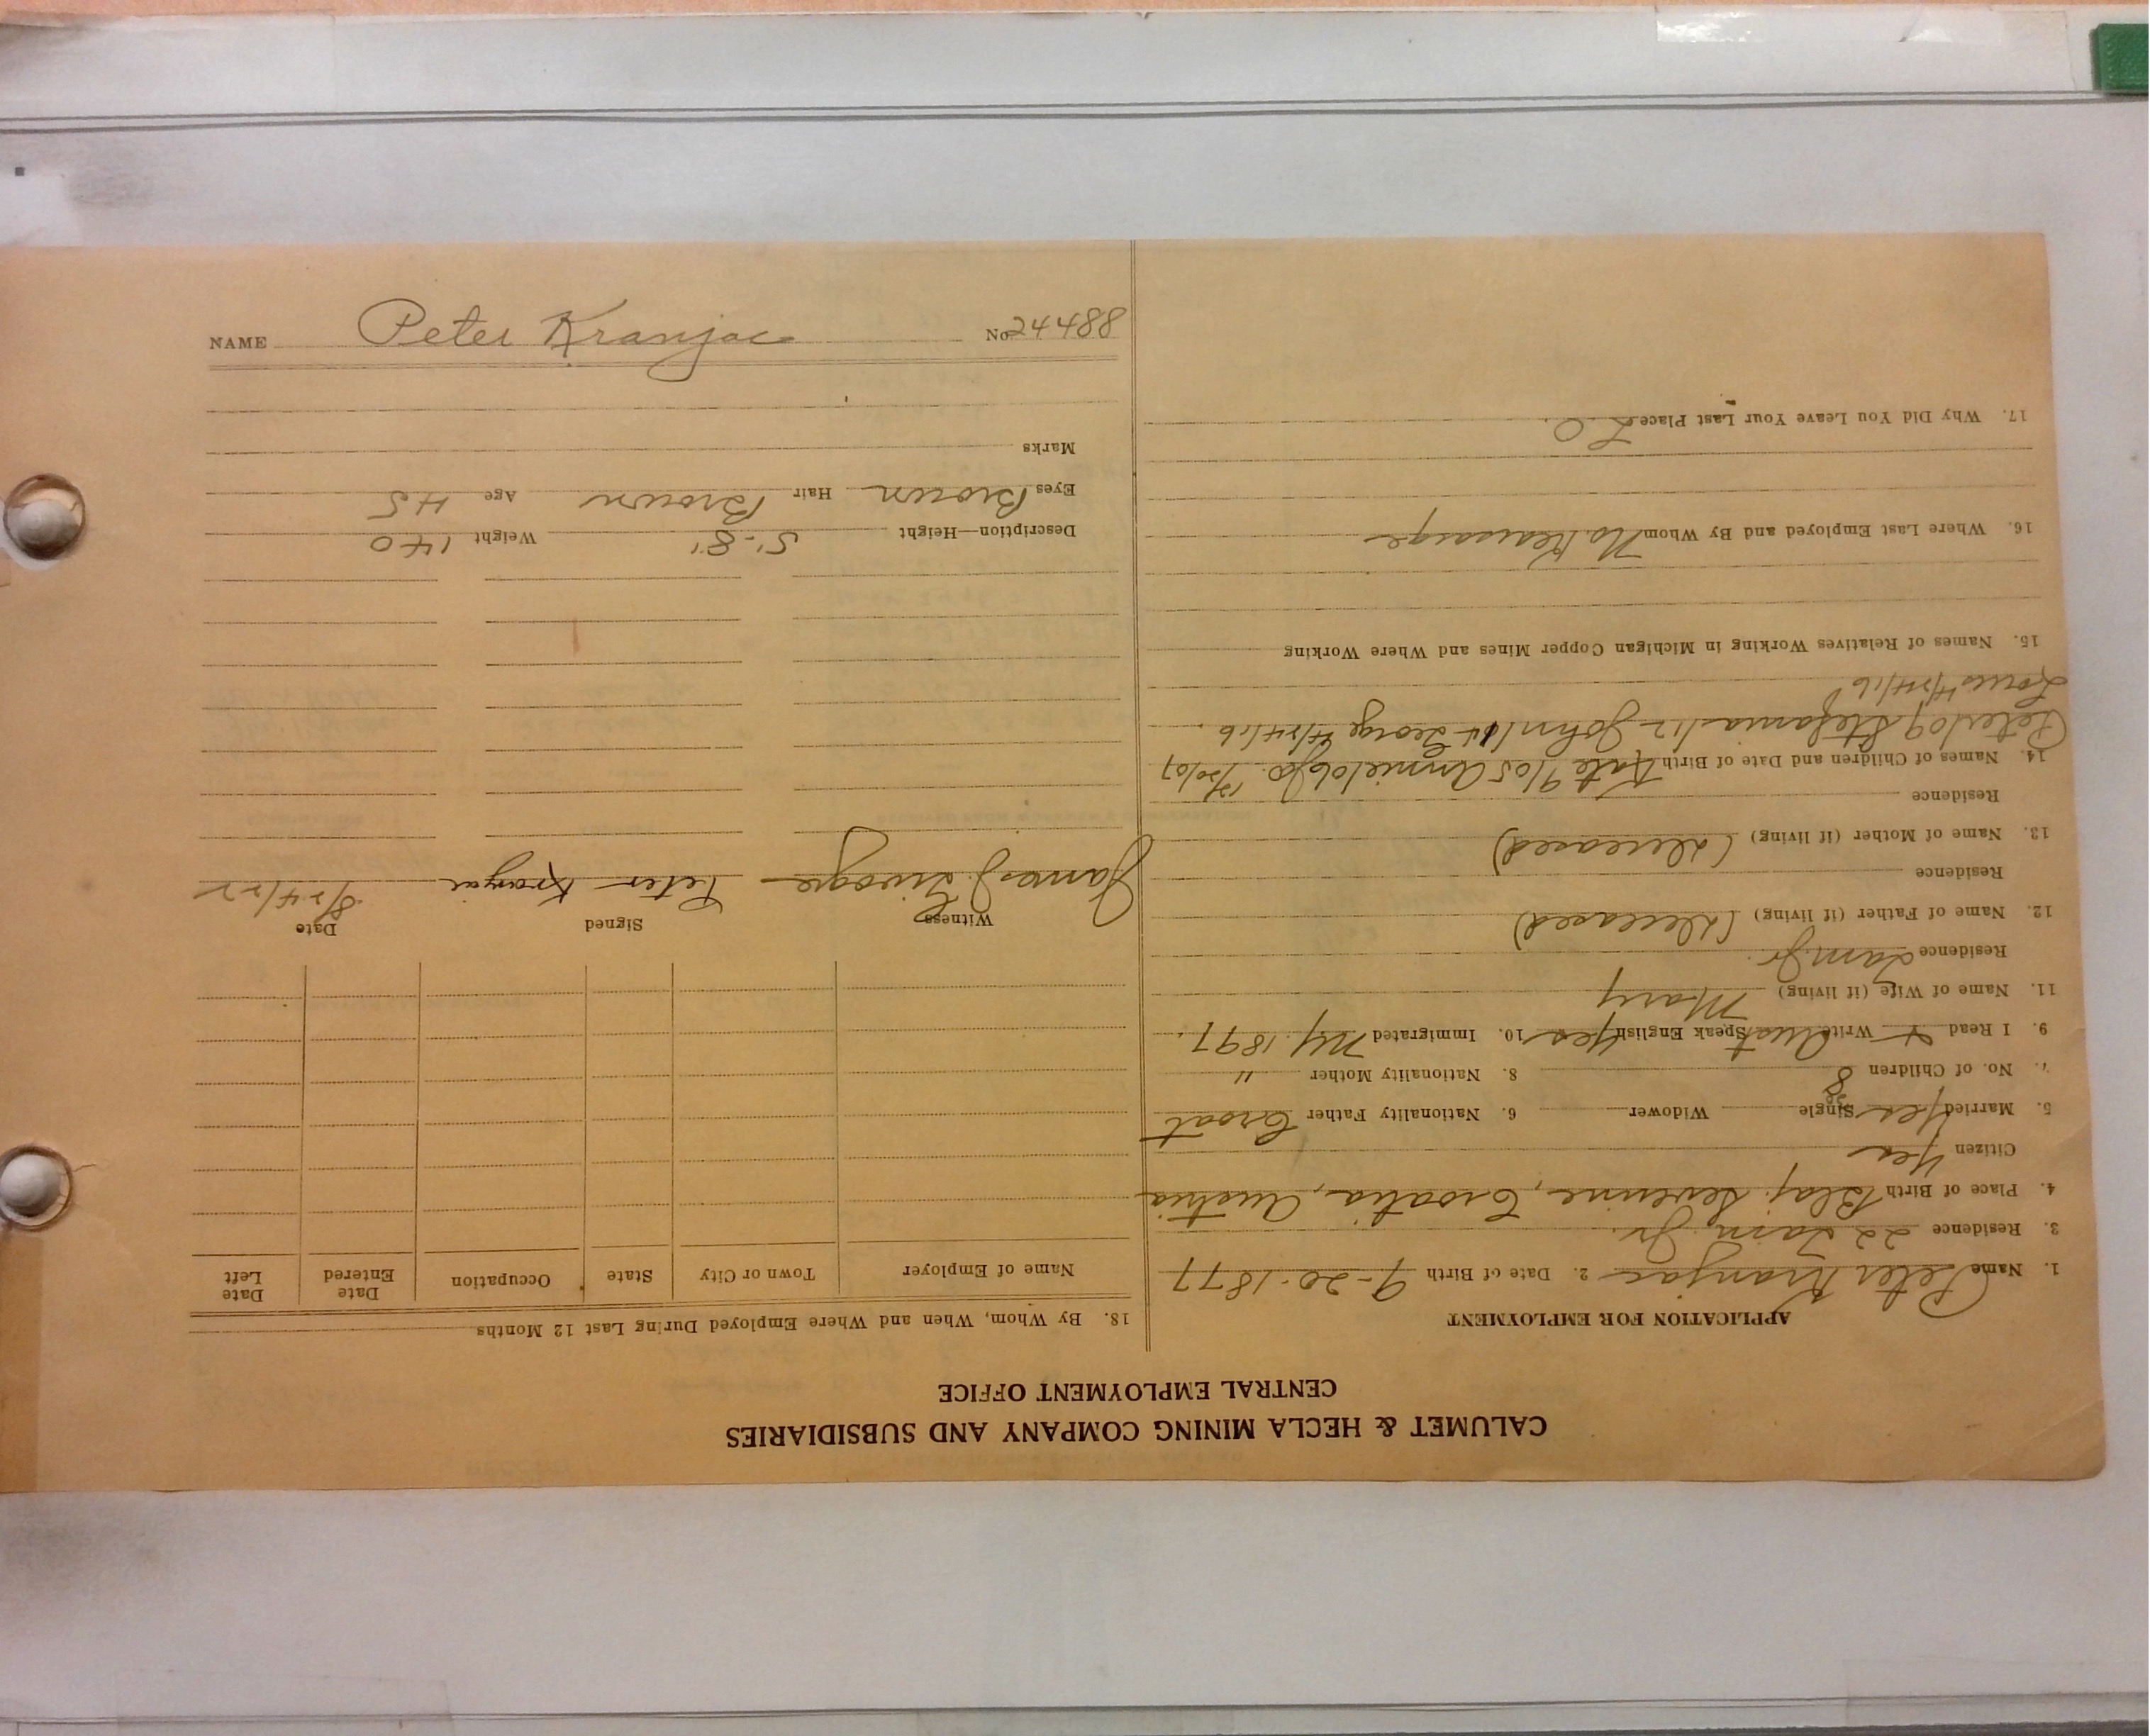 CALUMET & HECLA MINING COMPANY AND SUBSIDIARIES
CENTRAL EMPLOYMENT OFFICE
APPLICATION FOR EMPLOYMENT
1. Name Peter Kranjac 2. Date of Birth 9-20-1877
3. Residence 22 Tam. Jr.
4. Place of Birth Blaj. Severine, Croatia, Austria
Citizen Yes
5. Married Yes Single Widower 6. Nationality Father Croat
7. No. of Children 8 8. Nationality Mother "
9. I Read & Write Aust Speak English Yes 10. Immigrated NY. 1897.
11. Name of Wife (if living) Mary
Residence Tam. Jr.
12. Name of Father (if living) (Deceased)
Residence
13. Name of Mother (if living) (deceased)
Residence
14. Names of Children and Date of Birth Kate 9/05 Annie 1906
Peter/09 Stefania/12 John/14 George 4/24/16
Louis 4/24/16
15. Names of Relatives Working in Michigan Copper Mines and Where Working
16. Where Last Employed and By Whom No. Kearsarge
17. Why Did You Leave Your Last Place L.O.
18. By Whom, When and Where Employed During Last 12 Months
Name of Employer Town or City State Occupation Date Entered Date Left
Witness Signed Date
James J. Peter Kranjac 8/24/22
Description—Height 5'-8" Weight 140
Eyes Brown Hair Brown Age 45
Marks
NAME Peter Kranjac No 24488